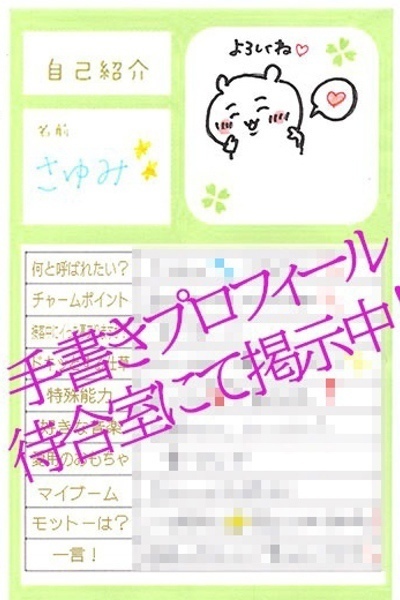 自己紹介
よろしくね♡
名前
さゆみ
何と呼ばれたい?
チャームポイント
特殊能力
好きな音楽
愛用のおもちゃ
マイブーム
モットーは?
一言!
手書きプロフィール
待合室にて掲示中!